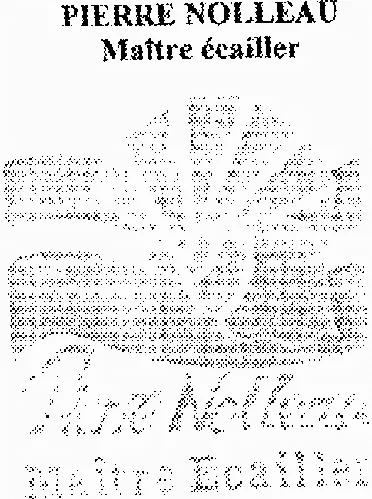 PIERRE NOLLEAU
Maître écailler
Pierre Nolleau
Maître Ecailler